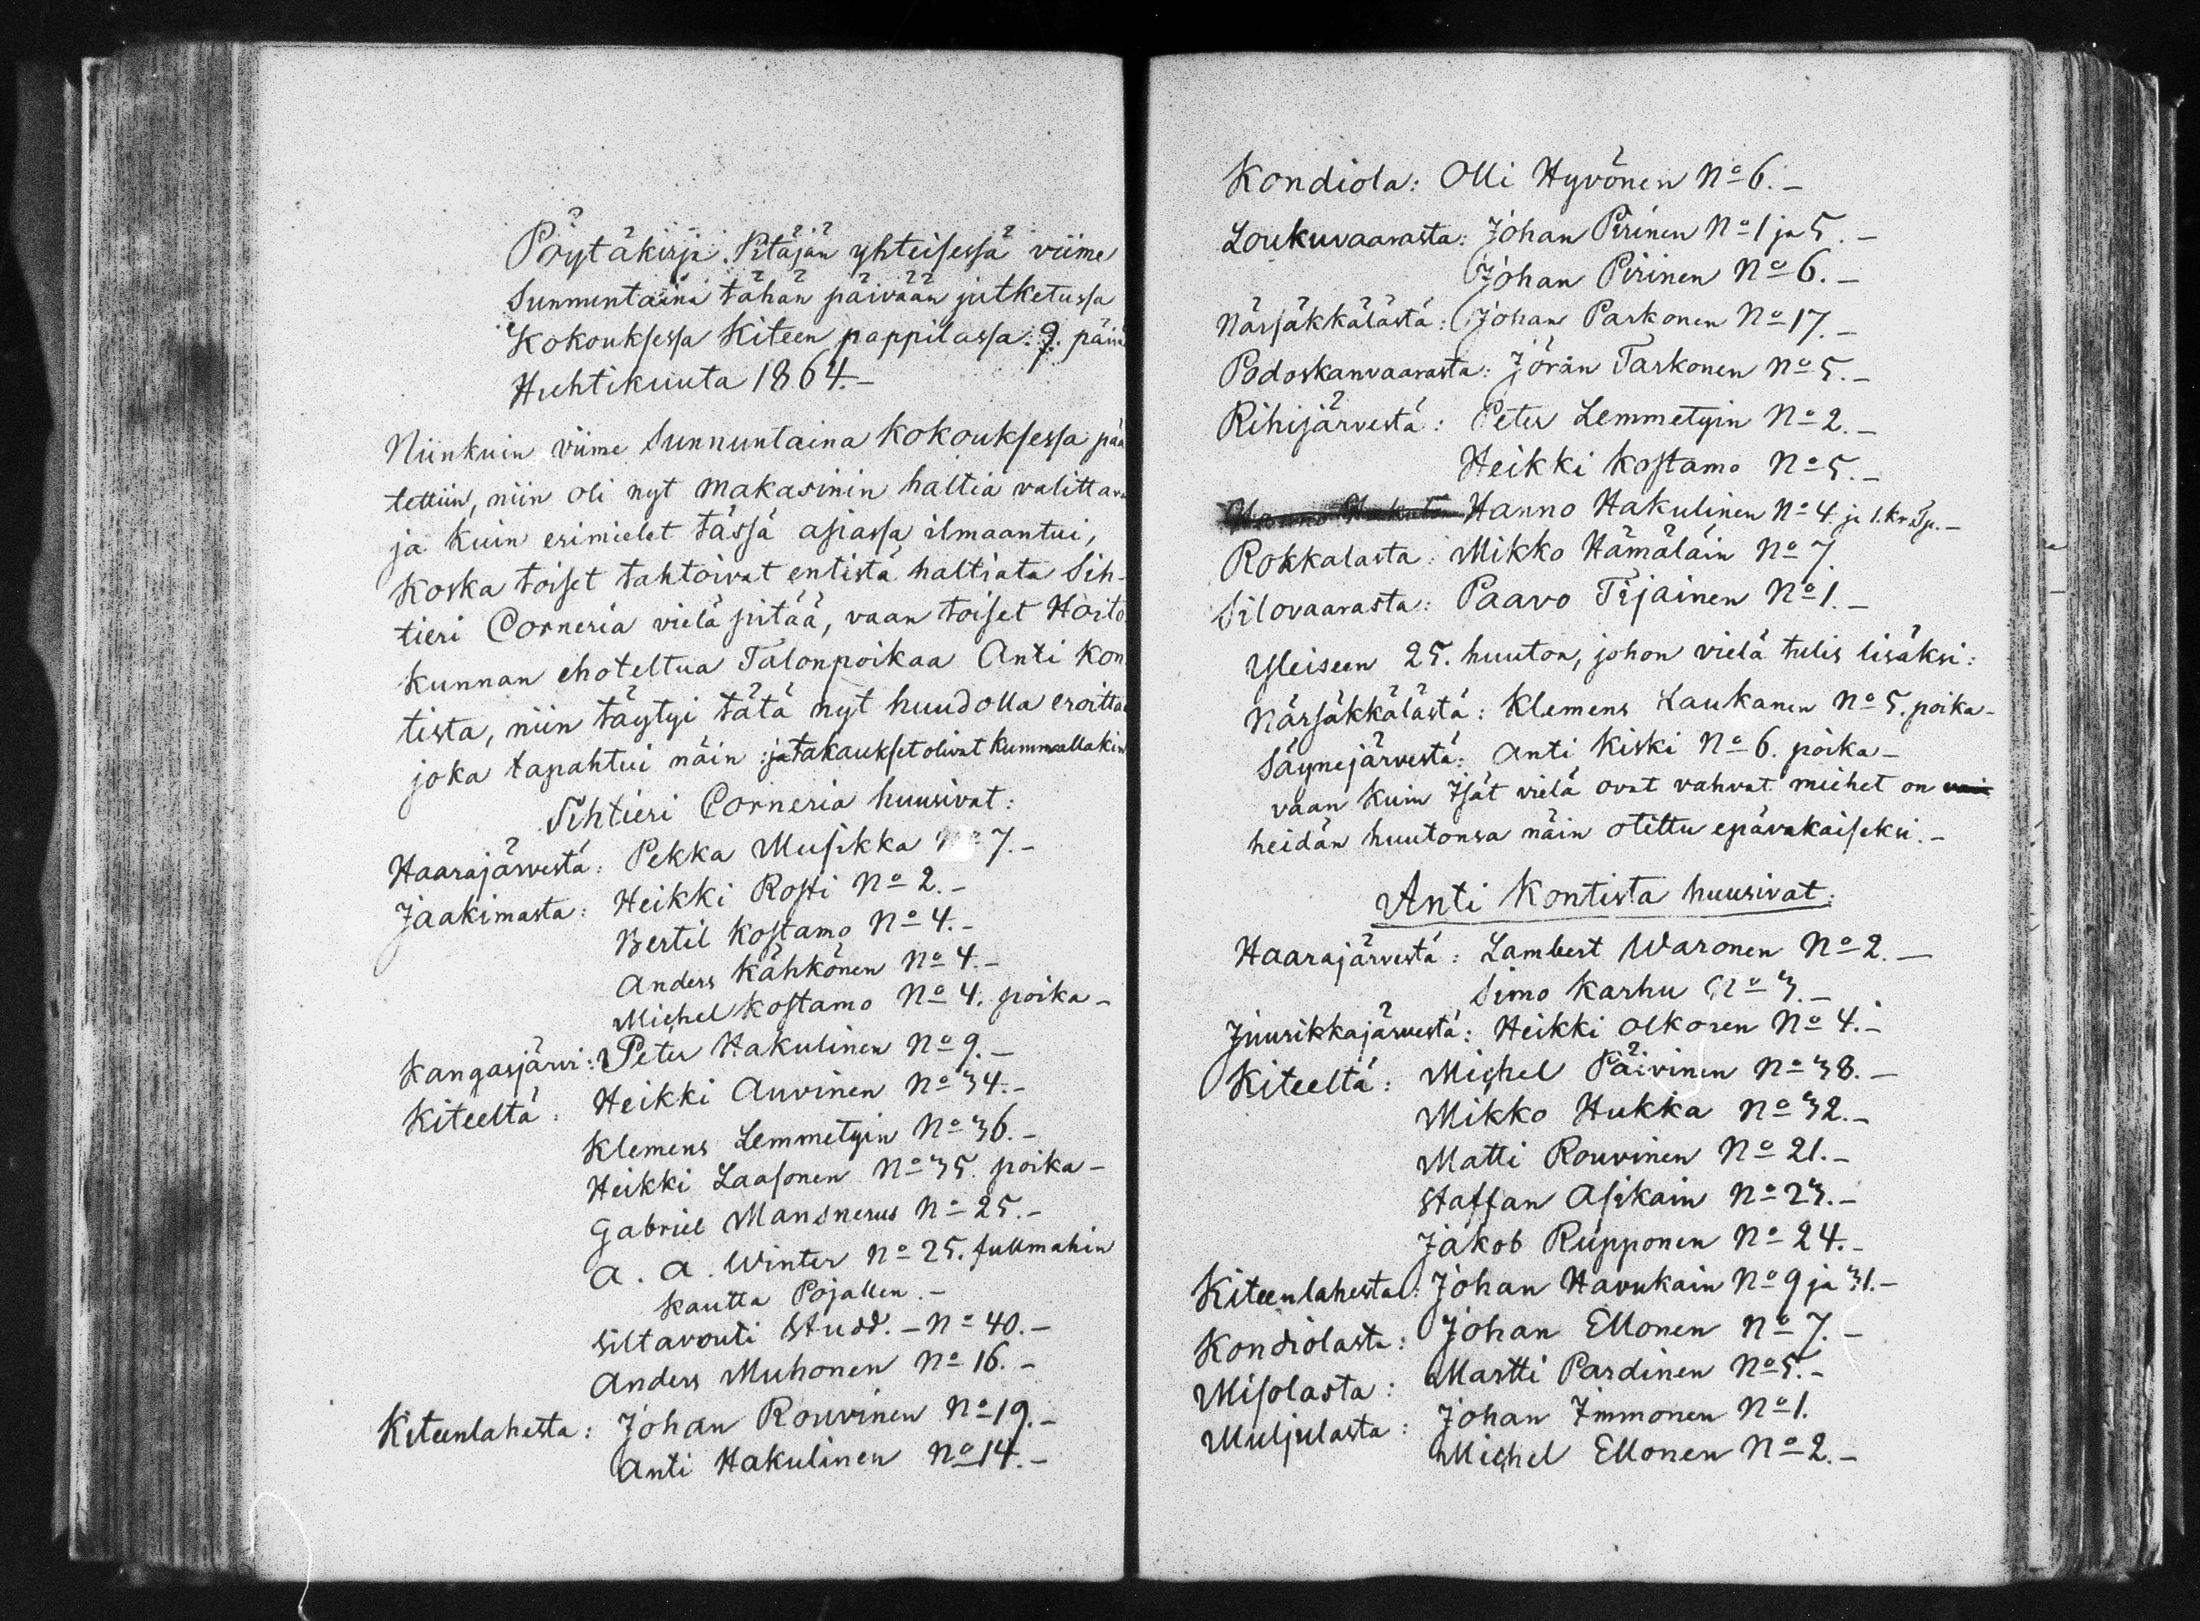 Pöytäkirja Pitäjän yhteisessä viime
Sunnuntaina tähän päivään jutketussa
Kokouksessa Kiteen pappilassa 9. päivä
Huhtikuuta 1864.—
Niinkuin viime Sunnuntaina kokouksessa pää
tettiin, niin oli nyt makasinin haltia valittava
ja kuin erimielet tässä asiassa ilmaantui,
koska toiset tahtoivat entistä haltiata Sih-
tieri Corneria vielä pitää, vaan toiset Hoito
kunnan ehoteltua Talonpoikaa Anti Kon
tista, niin täytyi tätä nyt huudolla eroittaa
joka tapahtui näin : ja takaukset olivat kummallakin
Sihtieri Corneria huusivat:
Haarajärvestä: Pekka Musikka No 7.—
Jaakimasta: Heikki Rosti No 2.—
Bertil Kostamo No 4.—
Anders Kähkönen No 4.—
Michel Kostamo No 4. poika—
Kangasjärvi: Peter Hakulinen No 9.—
Kiteeltä: Heikki Auvinen No 34.—
Klemens Lemmetyin No 36.—
Heikki Laasonen No 35. poika—
Gabriel Mansnerus No 25.—
A. A. Winter No 25. fullmahin
kautta Pojallen.—
Siltavouti Studd.— No 40.—
Anders Muhonen No 16.—
Kiteenlahesta: Johan Rouvinen No 19.—
Anti Hakulinen No 14.—
Kondiola: Olli Hyvönen No 6.—
Loukuvaarasta: Johan Pirinen No 1 ja 5.—
Johan Pirinen No 6.—
Närsäkkälästä: Johan Parkonen No 17.—
Podoskanvaarasta: Jöran Tarkonen No 5.—
Riihijärvestä: Peter Lemmetyin No 2.—
Heikki Kostamo No 5.—
Hanno Hakulinen No 4. ja 1.
Rokkalasta: Mikko Hämäläin No 7.
Silovaarasta: Paavo Tijainen No 1.—
Yleiseen 25. huuton, johon vielä tulis lisäksi:
Närsäkkälästä: Klemens Laukanen No 5. poika—
Säynejärvestä: Anti Kiski No 6. poika—
vaan kuin Isät vielä ovat vahvat miehet on
heidän huutonsa näin otettu epävakaiseksi.—
Anti Kontista huusivat:
Haarajärvestä: Lambert Waronen No 2.—
Simo Karhu No 3.—
Juurikkajärvestä: Heikki Olkonen No 4.—
Kiteeltä: Michel Päivinen No 38.—
Mikko Hukka No 32.—
Matti Rouvinen No 21.—
Staffan Asikain No 23.—
Jakob Ripponen No 24.—
Kiteenlahesta: Johan Havukain No 9 ja 31.—
Kondiolasta: Johan Ellonen No 7.—
Misolasta: Martti Pardinen No 5.—
Muljulasta: Johan Immonen No 1.
Michel Ellonen No 2.—